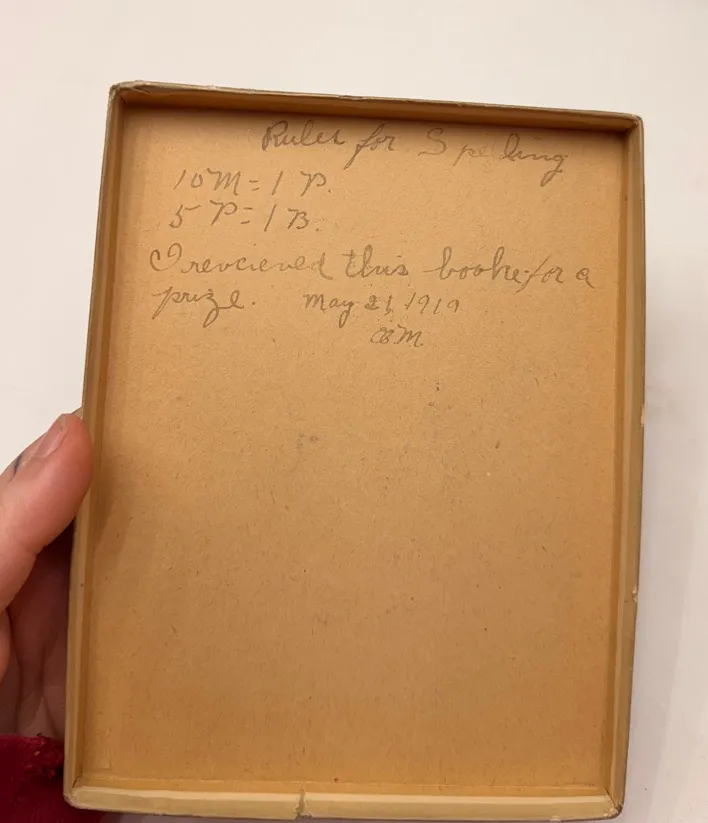 Rules for Spelling
10 M = 1 P.
5 P = 1 B.
I revcieved this booke for a
prize. May 21, 1919
M.